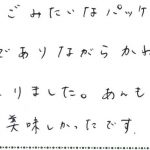 ごみたいなパッケ
でありながらかわ
りました。あんも
美味しかったです.